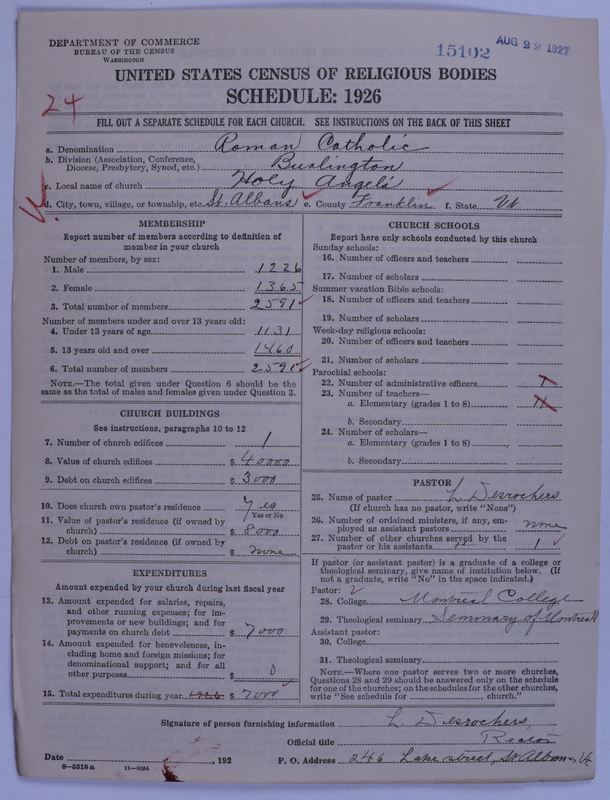 DEPARTMENT OF COMMERCE
BUREAU OF THE CENSUS
WASHINGTON
15102 AUG 22 1927
UNITED STATES CENSUS OF RELIGIOUS BODIES
SCHEDULE: 1926
24
FILL OUT A SEPARATE SCHEDULE FOR EACH CHURCH. SEE INSTRUCTIONS ON THE BACK OF THIS SHEET
a. Denomination Roman Catholic
b. Division (Association, Conference, Diocese, Presbytery, Synod, etc.) Burlington
c. Local name of church Holy Angels
d. City, town, village, or township, etc. St. Albans e. County Franklin f. State Vt
MEMBERSHIP
Report number of members according to definition of
member in your church
Number of members, by sex:
1. Male 1226
2. Female 1365
3. Total number of members 2591
Number of members under and over 13 years old:
4. Under 13 years of age 1131
5. 13 years old and over 1460
6. Total number of members 2591
NOTE.—The total given under Question 6 should be the
same as the total of males and females given under Question 3.
CHURCH BUILDINGS
See instructions, paragraphs 10 to 12
7. Number of church edifices 1
8. Value of church edifices $ 40000
9. Debt on church edifices $ 3000
10. Does church own pastor's residence yes
Yes or No
11. Value of pastor's residence (if owned by
church) $ 8000
12. Debt on pastor's residence (if owned by
church) $ none
EXPENDITURES
Amount expended by your church during last fiscal year
13. Amount expended for salaries, repairs,
and other running expenses; for im-
provements or new buildings; and for
payments on church debt $ 7000
14. Amount expended for benevolences, in-
cluding home and foreign missions; for
denominational support; and for all
other purposes $ 0
15. Total expenditures during year 1926 $ 7000
CHURCH SCHOOLS
Report here only schools conducted by this church
Sunday schools:
16. Number of officers and teachers
17. Number of scholars
Summer vacation Bible schools:
18. Number of officers and teachers
19. Number of scholars
Week-day religious schools:
20. Number of officers and teachers
21. Number of scholars
Parochial schools:
22. Number of administrative officers 1
23. Number of teachers—
a. Elementary (grades 1 to 8) 11
b. Secondary
24. Number of scholars—
a. Elementary (grades 1 to 8)
b. Secondary
PASTOR
25. Name of pastor L. Desrochers
(If church has no pastor, write "None")
26. Number of ordained ministers, if any, em-
ployed as assistant pastors none
27. Number of other churches served by the
pastor or his assistants 1
If pastor (or assistant pastor) is a graduate of a college or
theological seminary, give name of institution below. (If
not a graduate, write "No" in the space indicated.)
Pastor: 2
28. College Montreal College
29. Theological seminary Seminary of Montreal
Assistant pastor:
30. College
31. Theological seminary
NOTE.—Where one pastor serves two or more churches,
Questions 28 and 29 should be answered only on the schedule
for one of the churches; on the schedules for the other churches,
write "See schedule for church."
Signature of person furnishing information L. Desrochers,
Official title Rector
Date , 192 P. O. Address 246 Lake street, St Albans, Vt.
8—5518a 11—9054